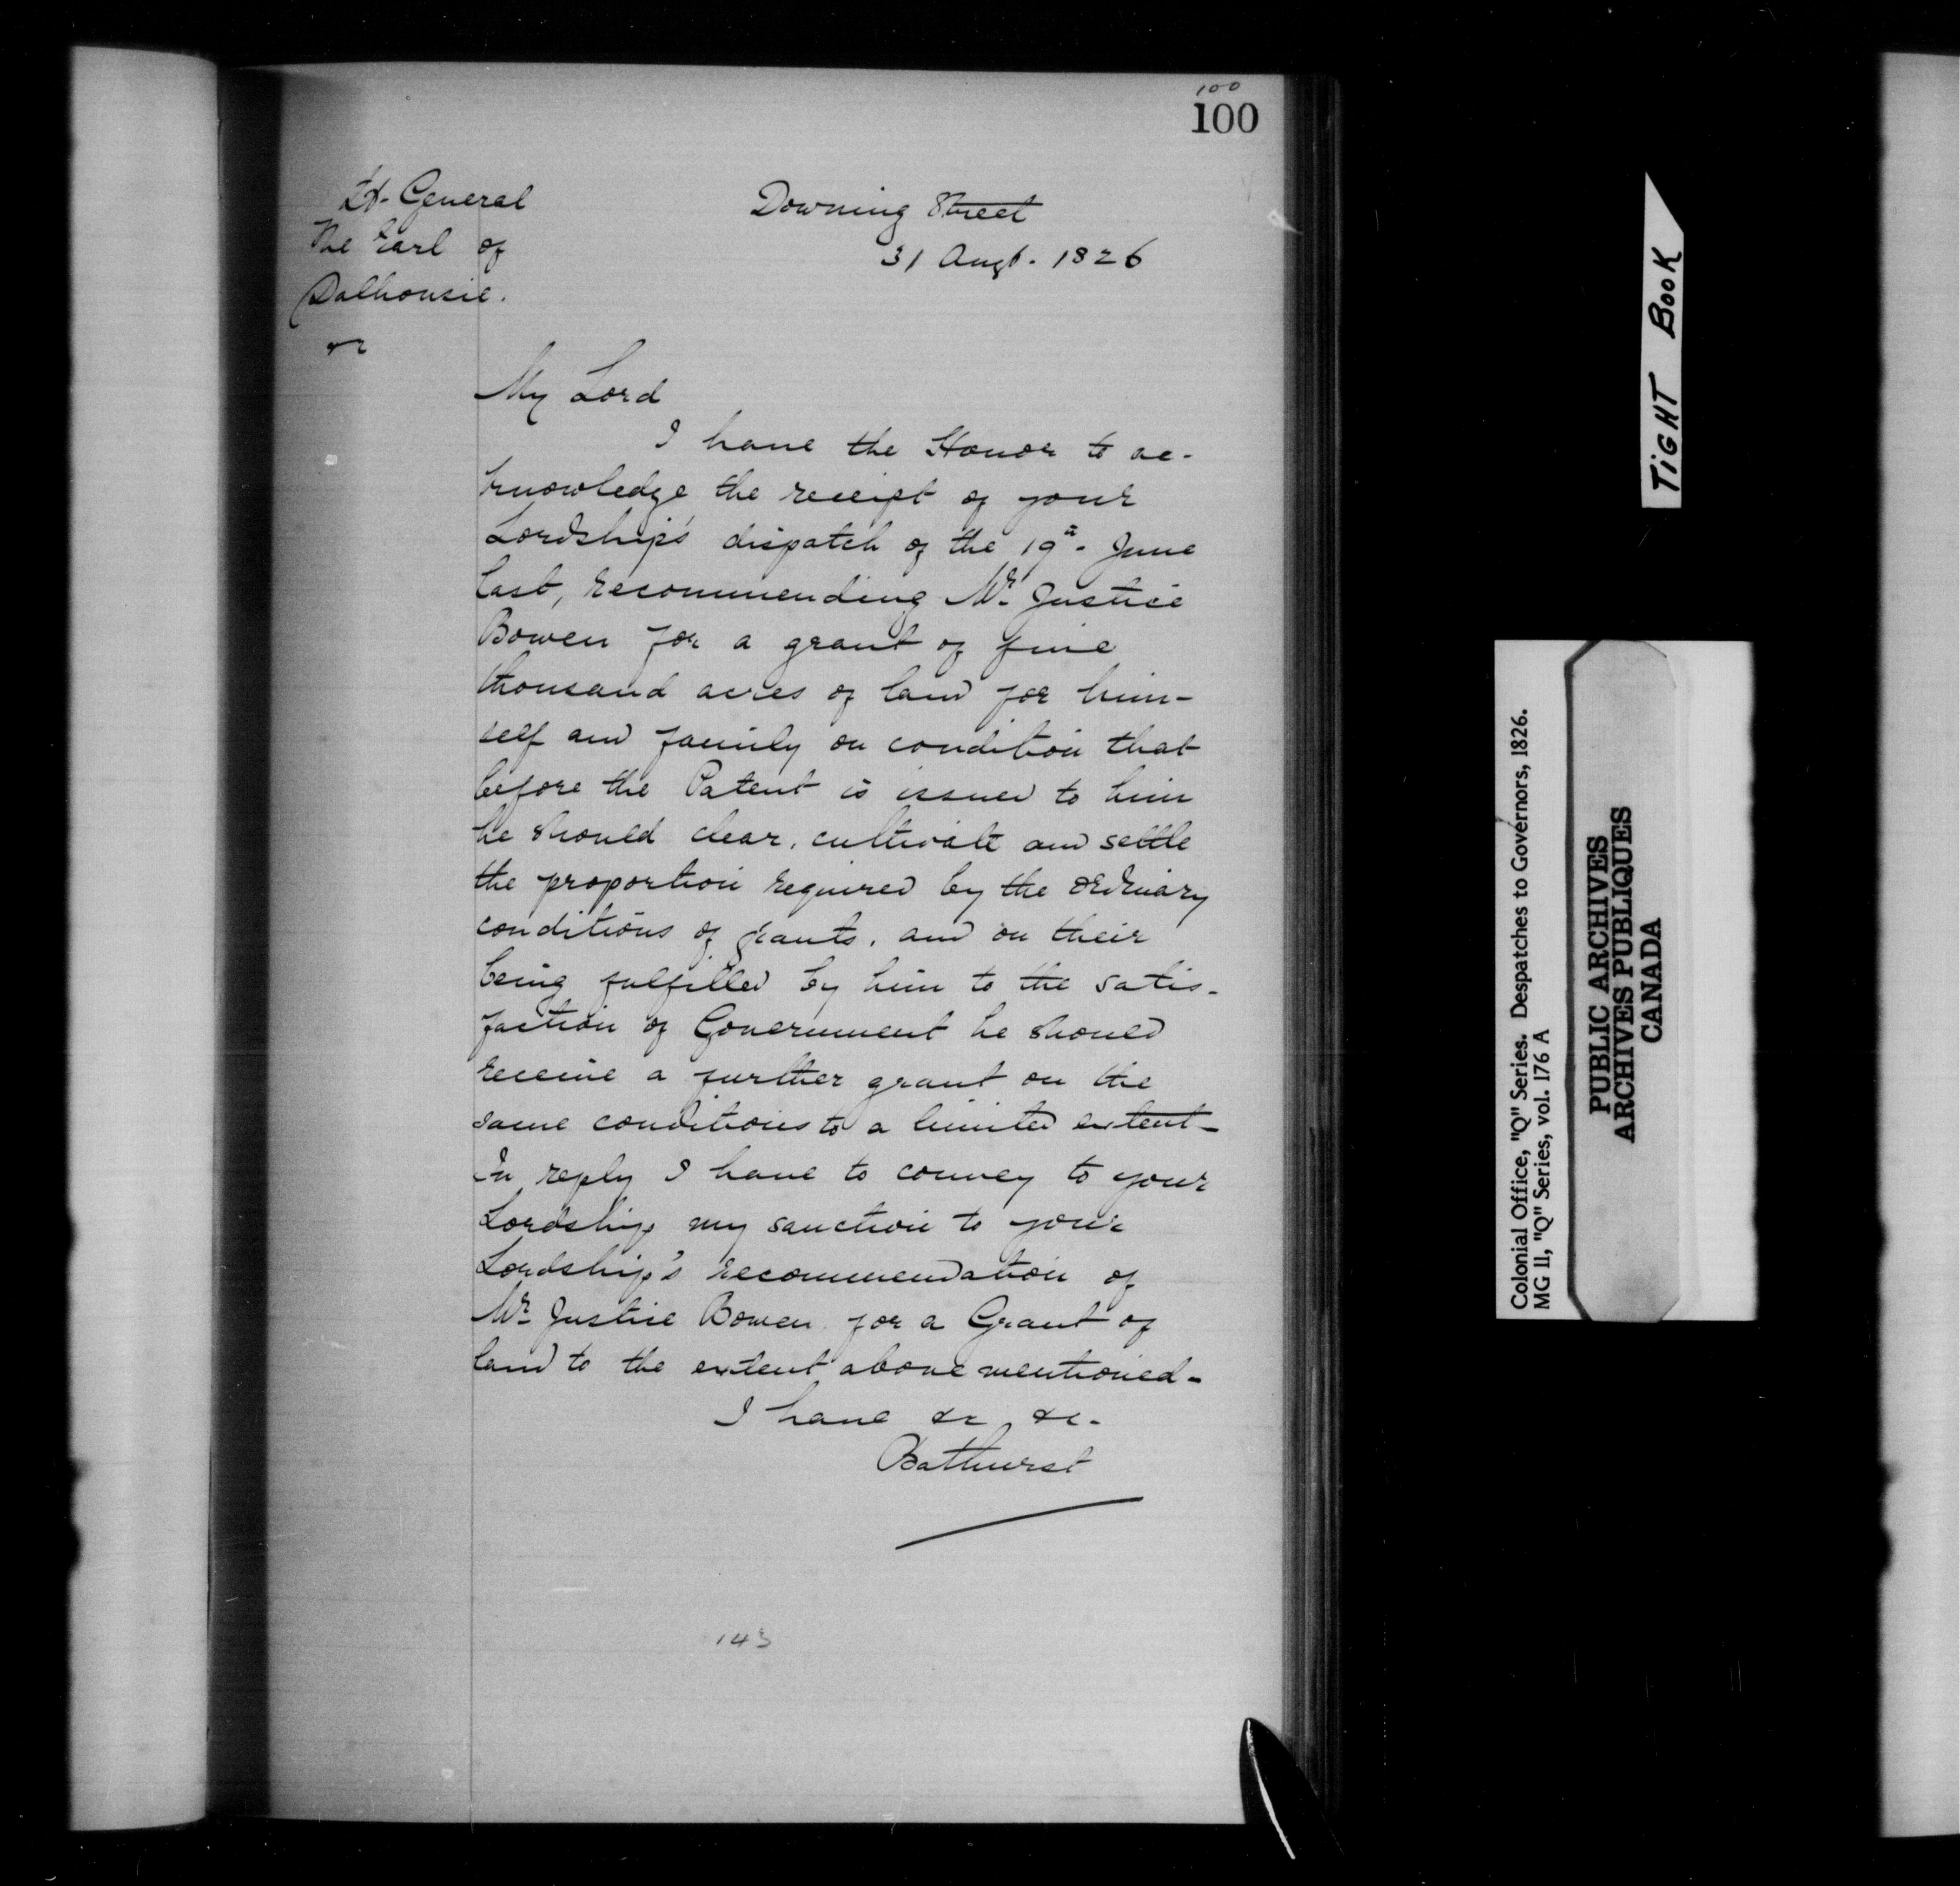 100
100
Lt. General
The Earl of
Dalhousie.
&c
Downing Street
31 Augt. 1826
My Lord
I have the Honor to ac-
knowledge the receipt of your
Lordship's dispatch of the 19th. June
last, recommending Mr. Justice
Bowen for a grant of five
thousand acres of land for him-
self and family on condition that
before the Patent is issued to him
he should clear, cultivate and settle
the proportion required by the ordinary
conditions of grants, and on their
being fulfilled by him to the satis-
faction of Government he should
receive a further grant on the
same conditions to a limited extent-
In reply I have to convey to your
Lordship my sanction to your
Lordship's recommendation of
Mr. Justice Bowen for a Grant of
land to the extent above mentioned-
I have &c, &c-
Bathurst
143
TIGHT BOOK
Colonial Office, "Q" Series. Despatches to Governors, 1826.
MG 11, "Q" Series, vol. 176 A
PUBLIC ARCHIVES
ARCHIVES PUBLIQUES
CANADA